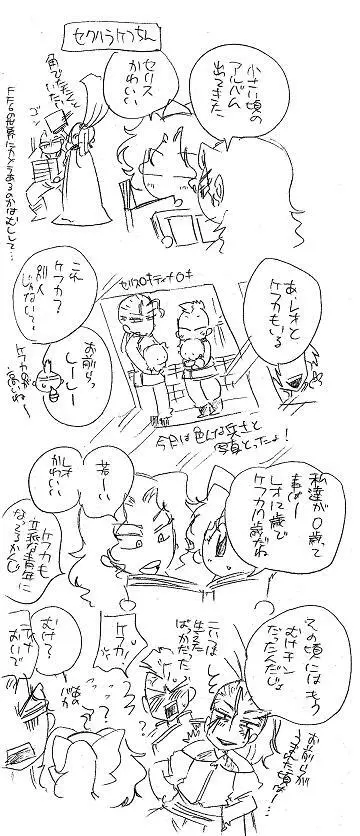 セクハラケっちん
小さい頃の
アルバム
出てきた
セリス
かわいい
角でたたくと
いたい
ゴン
FF6の世界にカメラあるのかはむしして…
あ、レオと
ケフカもいる
セリス0才ティナ0才
これ
ケフカ?
別人
じゃない?
お前ら
しーしー
ケフカが
来るわー
今日は色んな兵士と
写真とったよ!
私達が0歳て
事は…
レオに歳で
ケフカ19歳だね
若い
レオ
かわいい
ケフカも
立派な青年に
なってるから
この頃にはもう
むけチン
だったんだじょ
お前らが
うまれた頃は…!
こいつはし
生えた
ばっかだた
ケフカ!
むけ?
ティナ
おいで
あの
バカ